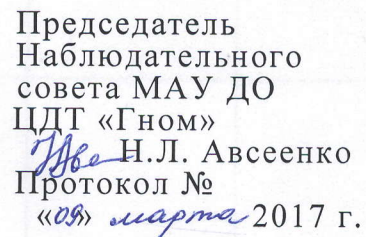 Председатель
Наблюдательного
совета МАУ ДО
ЦДТ «Гном»
Н.Л. Авсеенко
Протокол №
«09» марта 2017 г.